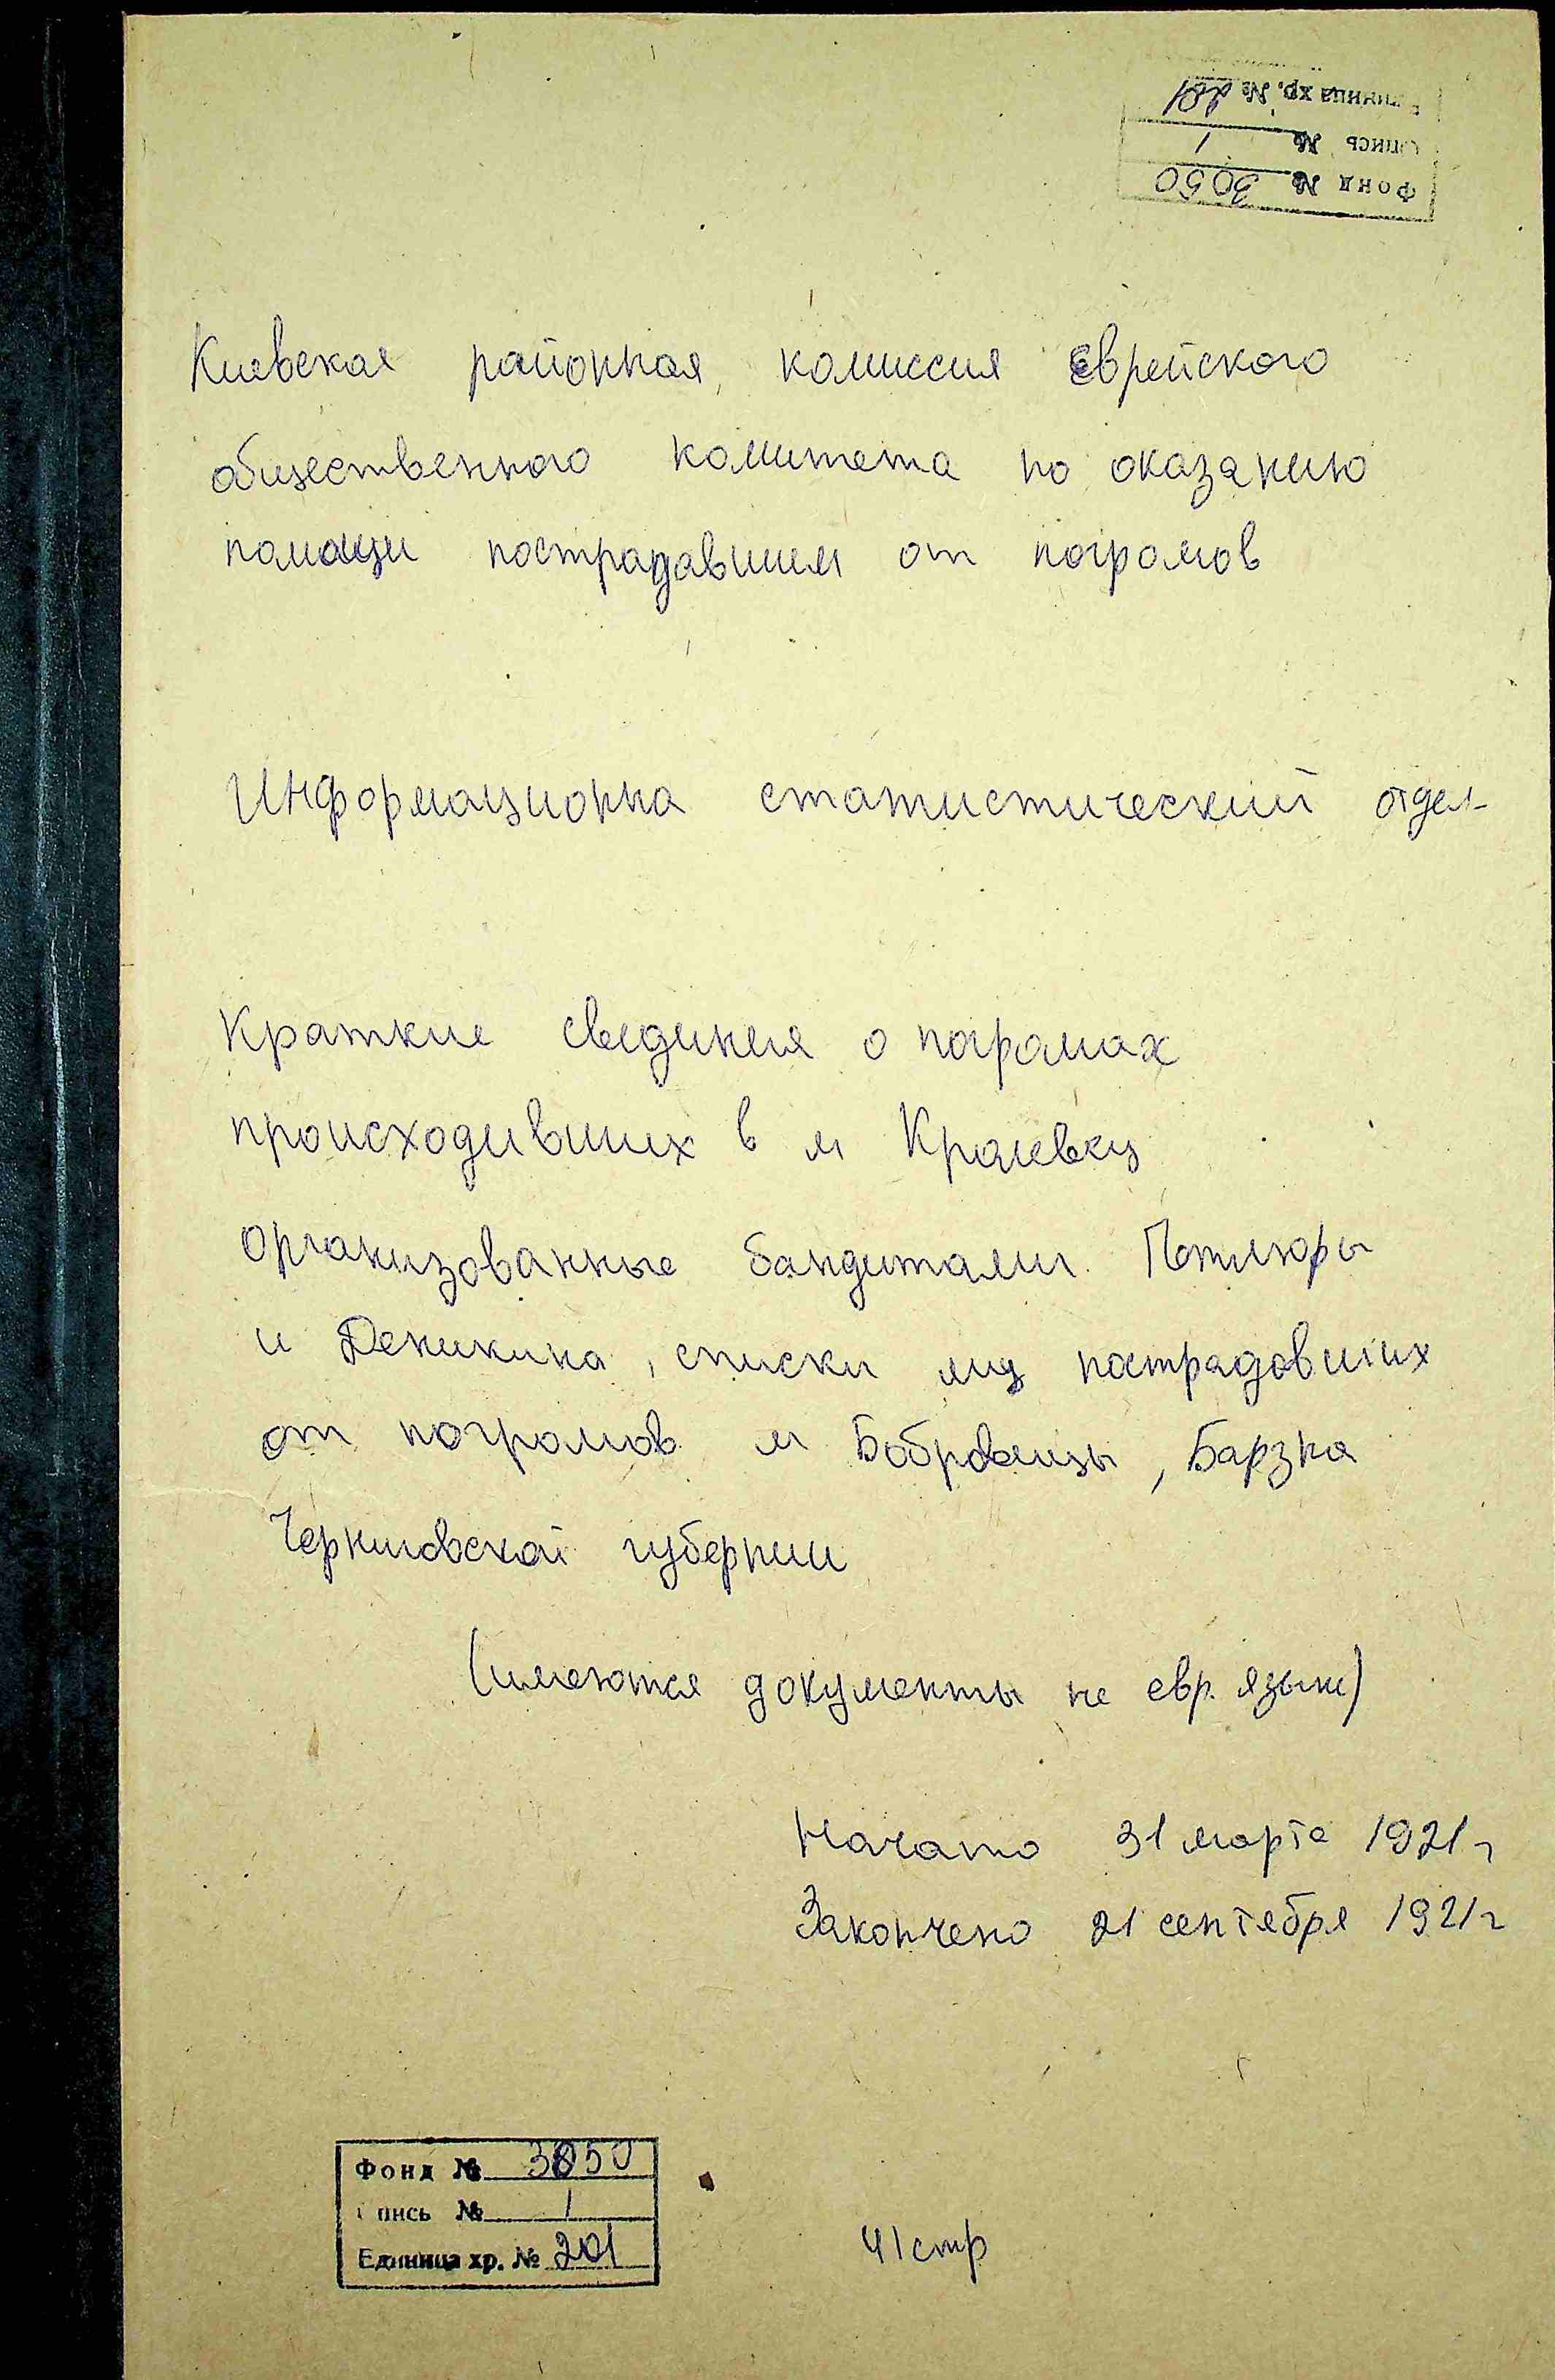 Единица хр. № 201
опись № 1
Фонд № 3050
Киевская районная комиссия Еврейского
общественного комитета по оказанию
помощи пострадавшим от погромов
Информационна статистический отдел
Краткие сведения о погромах
происходивших в м
организованные бандитами Петлюры
и Деникина, списки лиц пострадавших
от погромов м Бобровицы, Барзна
Черниговской губернии
(имеются документы на евр. языке)
Начато 31 марта 1921 г
Закончено 21 сентября 1921 г
Фонд № 3050
опись № 1
Единица хр. № 201
41 стр